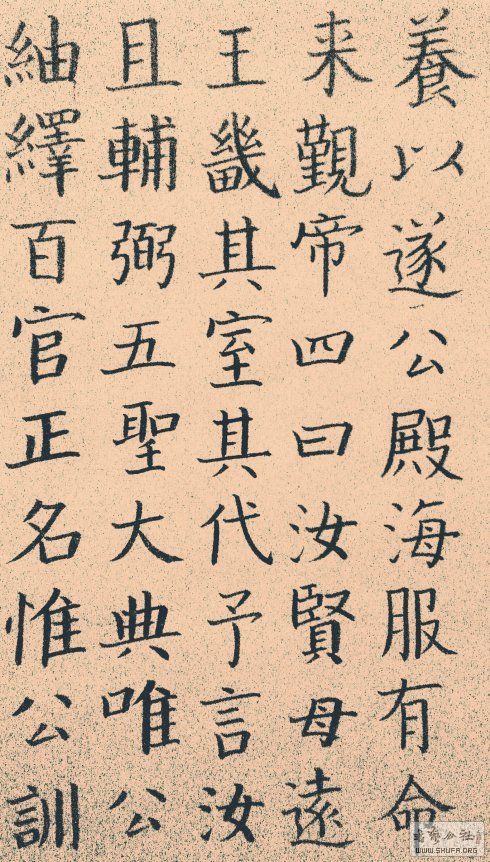 養以遂公殿海服有命
来覲帝四曰汝賢毋遠
王畿其室其代予言汝
且輔弼五聖大典唯公
紬繹百官正名惟公訓
WWW.SHUFA.ORG